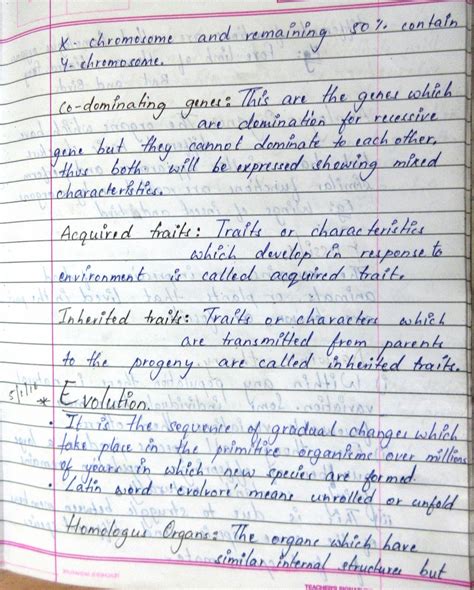 X - chromosome and remaining 50% contain
Y-chromosome.
Co-dominating genes: This are the genes which
are domination for recessive
gene but they cannot dominate to each other,
thus both will be expressed showing mixed
characteristics.
Acquired traits: Traits or characteristics
which develop in response to
environment is called acquired trait.
Inherited traits: Traits or characters which
are transmitted from parents
to the progeny are called inherited traits.
* Evolution.
• It is the sequence of gradual changes which
take place in the primitive organisms over millions
of years in which new species are formed.
• Latin word 'evolvore' means unrolled or unfold
Homologus Organs: The organs which have
similar internal structures but